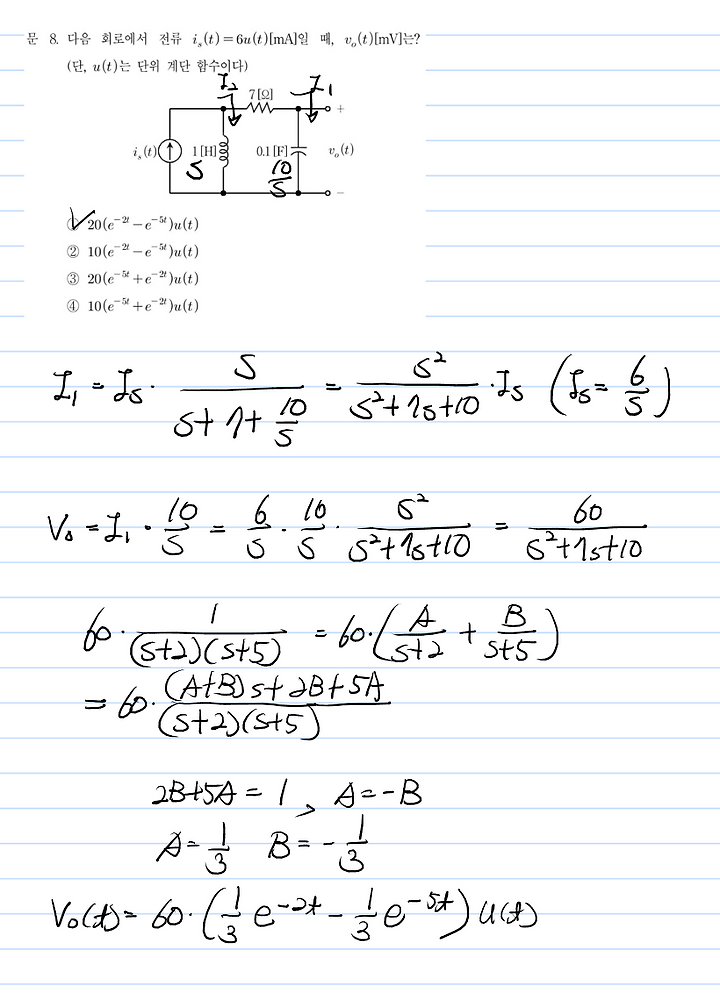 문 8. 다음 회로에서 전류 i_s(t)=6u(t)[mA]일 때, v_o(t)[mV]는?
(단, u(t)는 단위 계단 함수이다)
I₂ 7[Ω] I₁
+
i_s(t) 1[H] 0.1[F] v_o(t)
s 10/s
−
① 20(e^{-2t}-e^{-5t})u(t)
② 10(e^{-2t}-e^{-5t})u(t)
③ 20(e^{-5t}+e^{-2t})u(t)
④ 10(e^{-5t}+e^{-2t})u(t)
I₁ = Is · s/(s+7+10/s) = s²/(s²+7s+10) · Is (Is = 6/s)
V₀ = I₁ · 10/s = 6/s · 10/s · s²/(s²+7s+10) = 60/(s²+7s+10)
60 · 1/((s+2)(s+5)) = 60·(A/(s+2) + B/(s+5))
= 60 · ((A+B)s+2B+5A)/((s+2)(s+5))
2B+5A = 1, A=-B
A=1/3 B=-1/3
V₀(t)= 60·(1/3 e^{-2t} - 1/3 e^{-5t}) u(t)